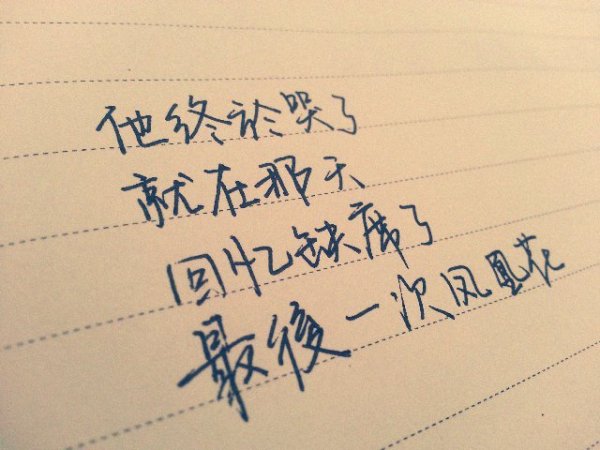 他終於哭了
就在那天
回忆缺席了
最後一次凤凰花